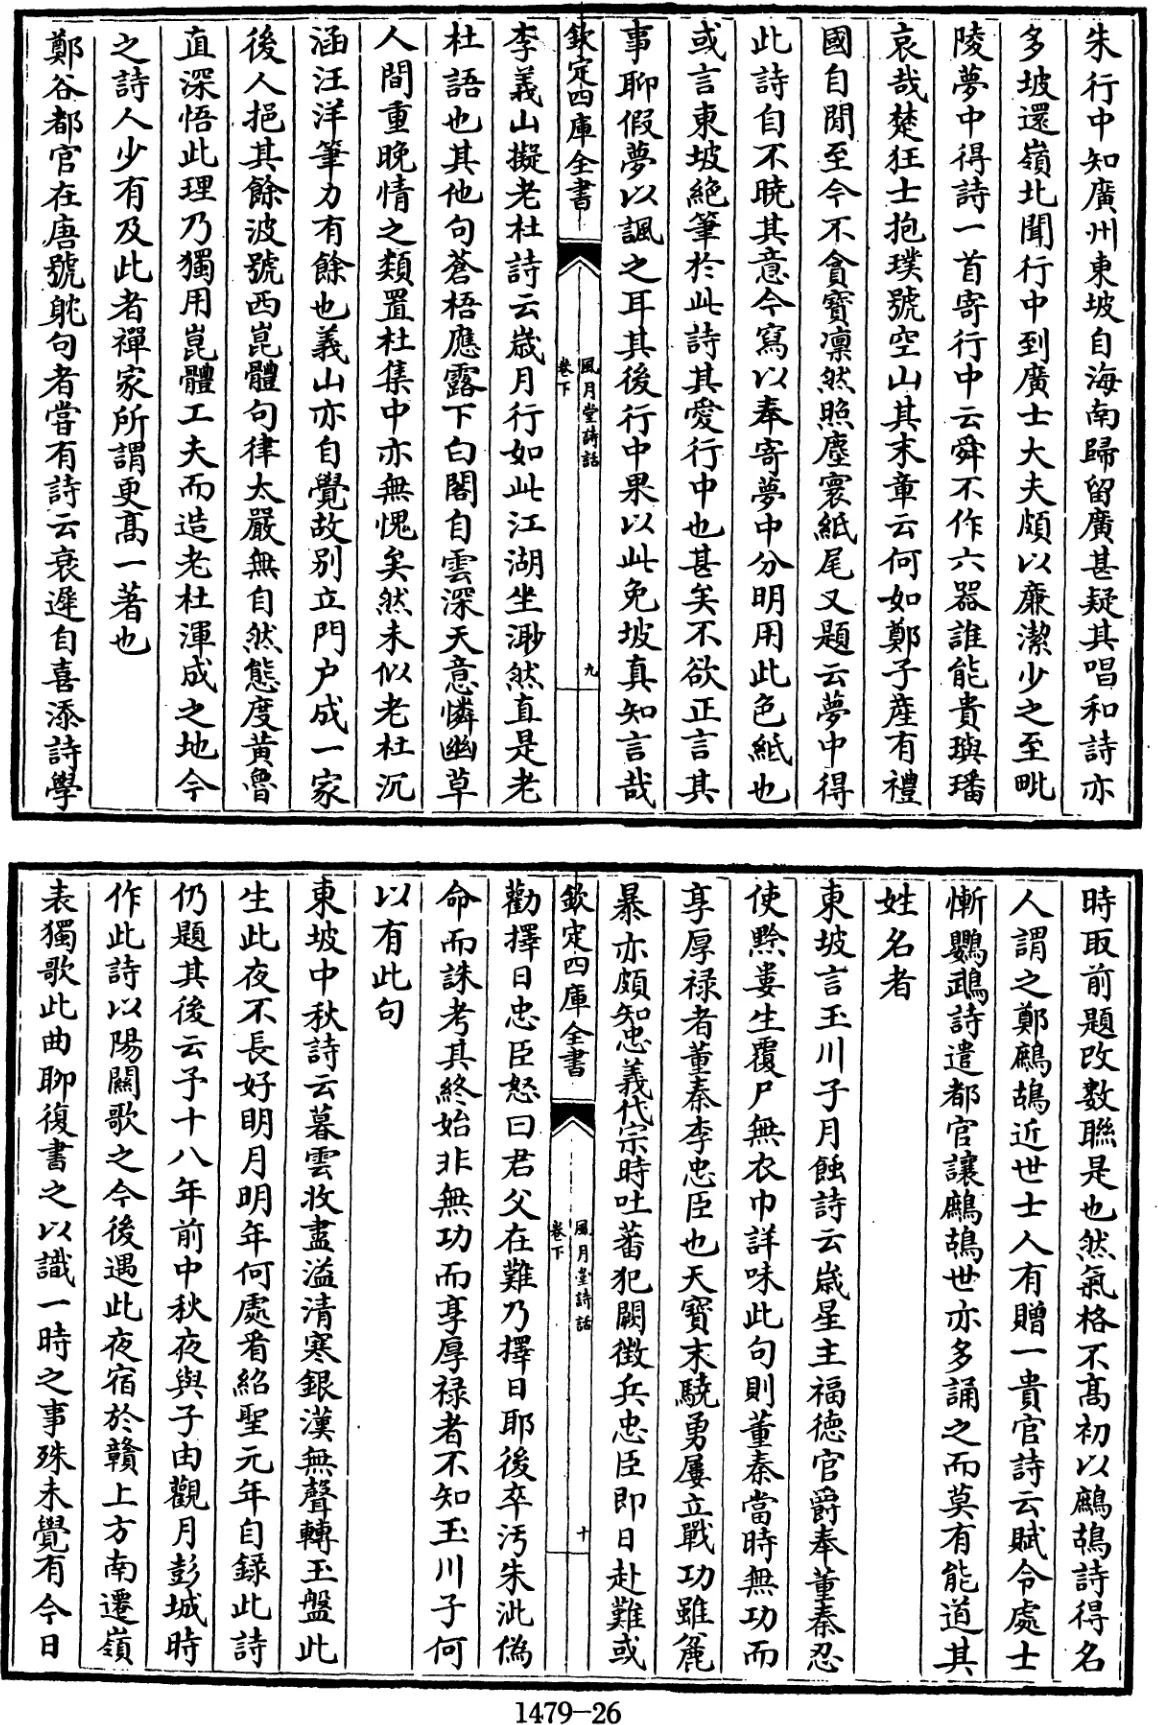 朱行中知廣州東坡自海南歸留廣甚疑其唱和詩亦
多坡還嶺北聞行中到廣士大夫頗以廉潔少之至毗
陵夢中得詩一首寄行中云舜不作六器誰能貴璵璠
哀哉楚狂士抱璞號空山其末章云何如鄭子產有禮
國自閒至今不貪寶凛然照塵寰紙尾又題云夢中得
此詩自不曉其意今寫以奉寄夢中分明用此色紙也
或言東坡絕筆於此詩其愛行中也甚矣不欲正言其
事聊假夢以諷之耳其後行中果以此免坡真知言哉
欽定四庫全書
風月堂詩話
卷下
九
李義山擬老杜詩云歲月行如此江湖坐渺然直是老
杜語也其他句蒼梧應露下白閣自雲深天意憐幽草
人間重晚情之類置杜集中亦無愧矣然未似老杜沉
涵汪洋筆力有餘也義山亦自覺故别立門户成一家
後人挹其餘波號西崑體句律太嚴無自然態度黄魯
直深悟此理乃獨用崑體工夫而造老杜渾成之地今
之詩人少有及此者禪家所謂更髙一著也
鄭谷都官在唐號躭句者嘗有詩云衰遲自喜添詩學
時取前題改數聯是也然氣格不髙初以鷓鴣詩得名
人謂之鄭鷓鴣近世士人有贈一貴官詩云賦令處士
慚鸚鵡詩遣都官讓鷓鴣世亦多誦之而莫有能道其
姓名者
東坡言玉川子月蝕詩云歲星主福德官爵奉董秦忍
使黔婁生覆尸無衣巾詳味此句則董秦當時無功而
享厚禄者董秦李忠臣也天寶末驍勇屢立戰功雖麄
暴亦頗知忠義代宗時吐蕃犯闕徴兵忠臣即日赴難或
欽定四庫全書
風月堂詩話
卷下
十
勸擇日忠臣怒曰君父在難乃擇日耶後卒汚朱泚偽
命而誅考其終始非無功而享厚禄者不知玉川子何
以有此句
東坡中秋詩云暮雲收盡溢清寒銀漢無聲轉玉盤此
生此夜不長好明月明年何處看紹聖元年自録此詩
仍題其後云予十八年前中秋夜與子由觀月彭城時
作此詩以陽關歌之今後遇此夜宿於贛上方南遷嶺
表獨歌此曲聊復書之以識一時之事殊未覺有今日
1479-26